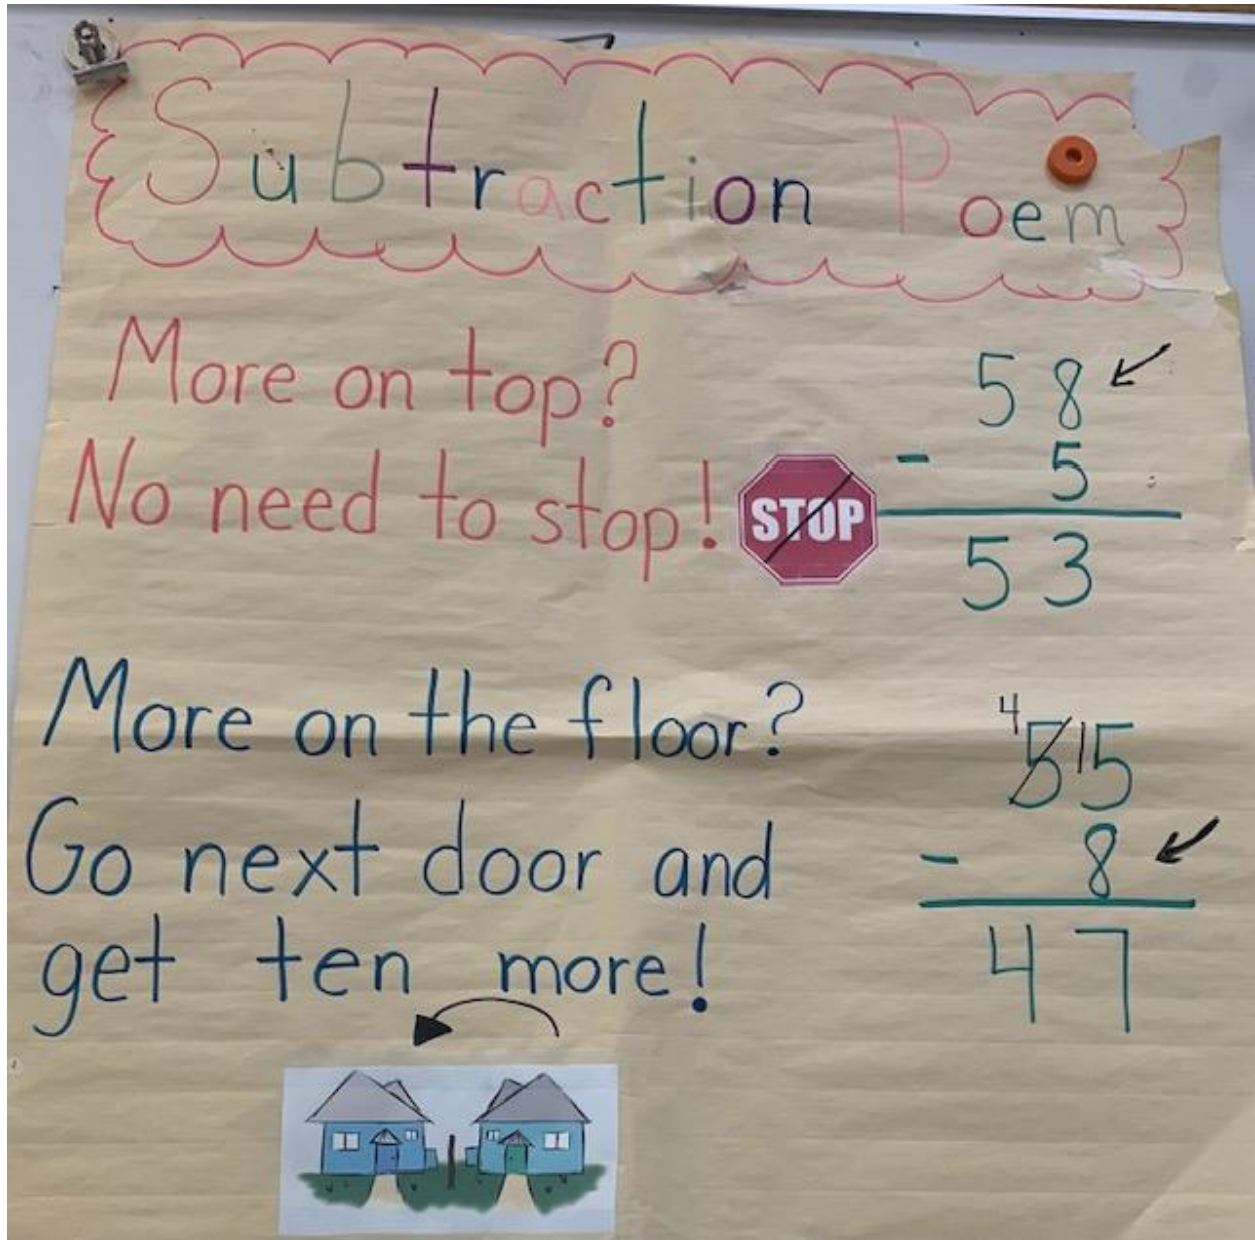 Subtraction Poem
More on top?
58
No need to stop!
STOP
- 5
53
More on the floor?
4
5 15
Go next door and
- 8
get ten more!
47